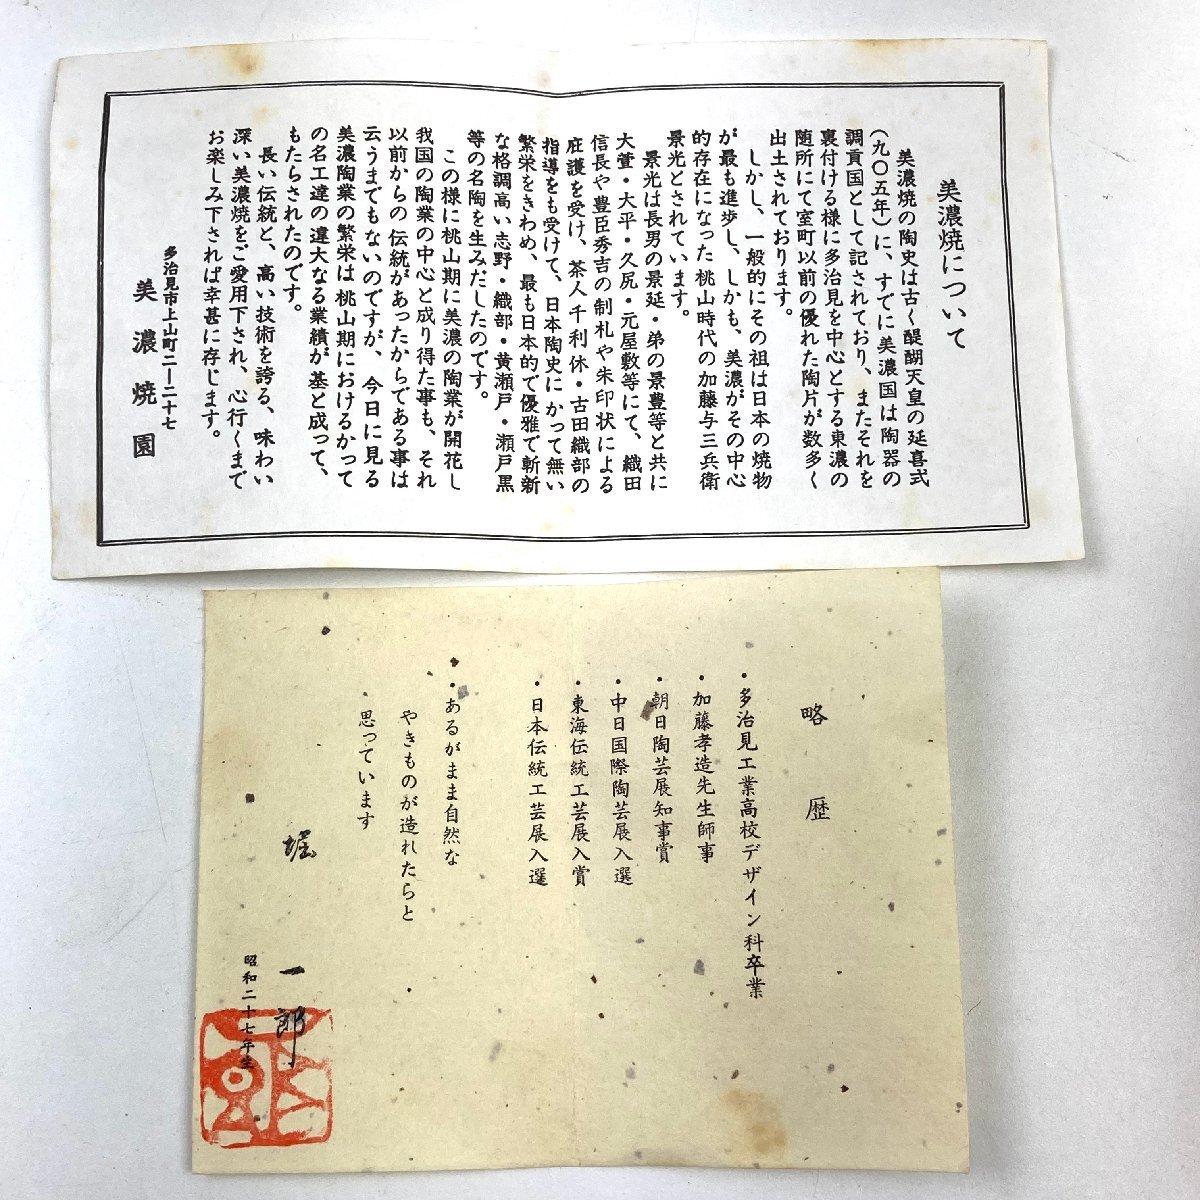 美濃焼について
美濃焼の陶史は古く醍醐天皇の延喜式
(九〇五年)に、すでに美濃国は陶器の
調貢国として記されており、またそれを
裏付ける様に多治見を中心とする東濃の
随所にて室町以前の優れた陶片が数多く
出土されております。
しかし、一般的にその祖は日本の焼物
が最も進歩し、しかも、美濃がその中心
的存在になった桃山時代の加藤与三兵衛
景光とされています。
景光は長男の景延・弟の景豊等と共に
大萱・大平・久尻・元屋敷等にて、織田
信長や豊臣秀吉の制札や朱印状による
庇護を受け、茶人千利休・古田織部の
指導をも受けて、日本陶史にかって無い
繁栄をきわめ、最も日本的で優雅で斬新
な格調高い志野・織部・黄瀬戸・瀬戸黒
等の名陶を生みだしたのです。
この様に桃山期に美濃の陶業が開花し
我国の陶業の中心と成り得た事も、それ
以前からの伝統があったからである事は
云うまでもないのですが、今日に見る
美濃陶業の繁栄は桃山期におけるかって
の名工達の違大なる業績が基と成って、
もたらされたのです。
長い伝統と、高い技術を誇る、味わい
深い美濃焼をご愛用下され、心行くまで
お楽しみ下されば幸甚に存じます。
多治見市上山町二ー二十七
美濃焼園
略歴
・多治見工業高校デザイン科卒業
・加藤孝造先生師事
・朝日陶芸展知事賞
・中日国際陶芸展入選
・東海伝統工芸展入賞
・日本伝統工芸展入選
・あるがまま自然な
やきものが造れたらと
思っています
堀一郎
昭和二十七年生